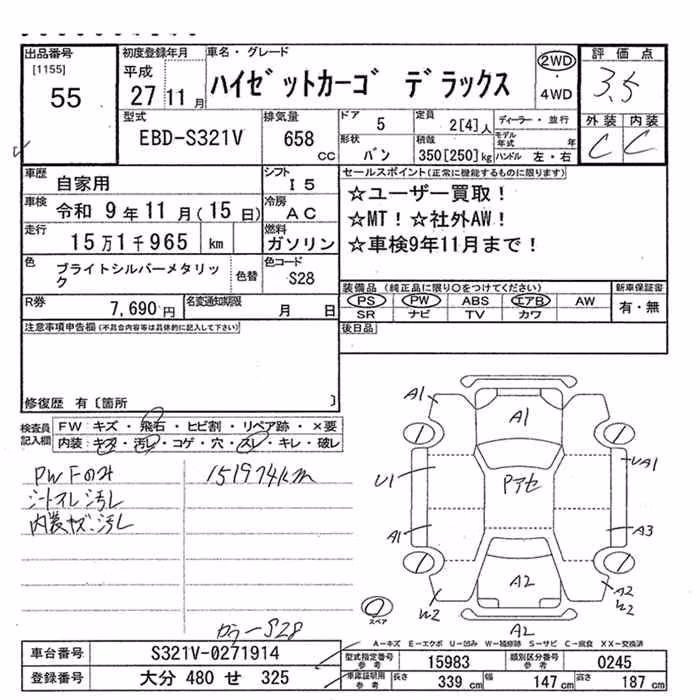 出品番号
[1155]
55
初度登録年月
平成
27 11 月
車名・グレード
ハイゼットカーゴ デラックス
2WD
・
4WD
評価点
3.5
外装 内装
C C
型式
EBD-S321V
排気量
658
cc
ドア
5
定員
2[4]人
ディーラー・並行
形状
バン
積載
350[250]kg
モデル
年式 年
ハンドル 左・右
車歴
自家用
シフト
I5
車検
令和 9年11月(15日)
冷房
AC
走行
15万1千965 km
燃料
ガソリン
色
ブライトシルバーメタリック
色替
色コード
S28
R券
7,690円
名変通知期限
月 日
セールスポイント(正常に機能するものに限ります)
☆ユーザー買取!
☆MT!☆社外AW!
☆車検9年11月まで!
装備品(純正品に限り○をつけてください)
PS PW ABS エアB AW
SR ナビ TV カワ
新車保証書
有・無
後日品
注意事項申告欄(不具合内容等は具体的に記入して下さい)
修復歴 有〔箇所 〕
検査員
記入欄
FW キズ・飛石・ヒビ割・リペア跡・×要
内装 キズ・汚レ・コゲ・穴・スレ・キレ・破レ
PWFのみ
151974km
シートスレ汚レ
内装キズ汚レ
カラーS28
A1
A1
U1
UA1
Pアセ
A1
A3
A2
A2
W2
W2
A2
スペア
A-キズ E-エクボ U-凹み W-補修跡 S-サビ C-腐食 XX-交換済
車台番号
S321V-0271914
登録番号
大分 480 せ 325
型式指定番号
参考
15983
類別区分番号
参考
0245
車庫証明用
参考
長さ
339 cm
幅
147 cm
高さ
187 cm